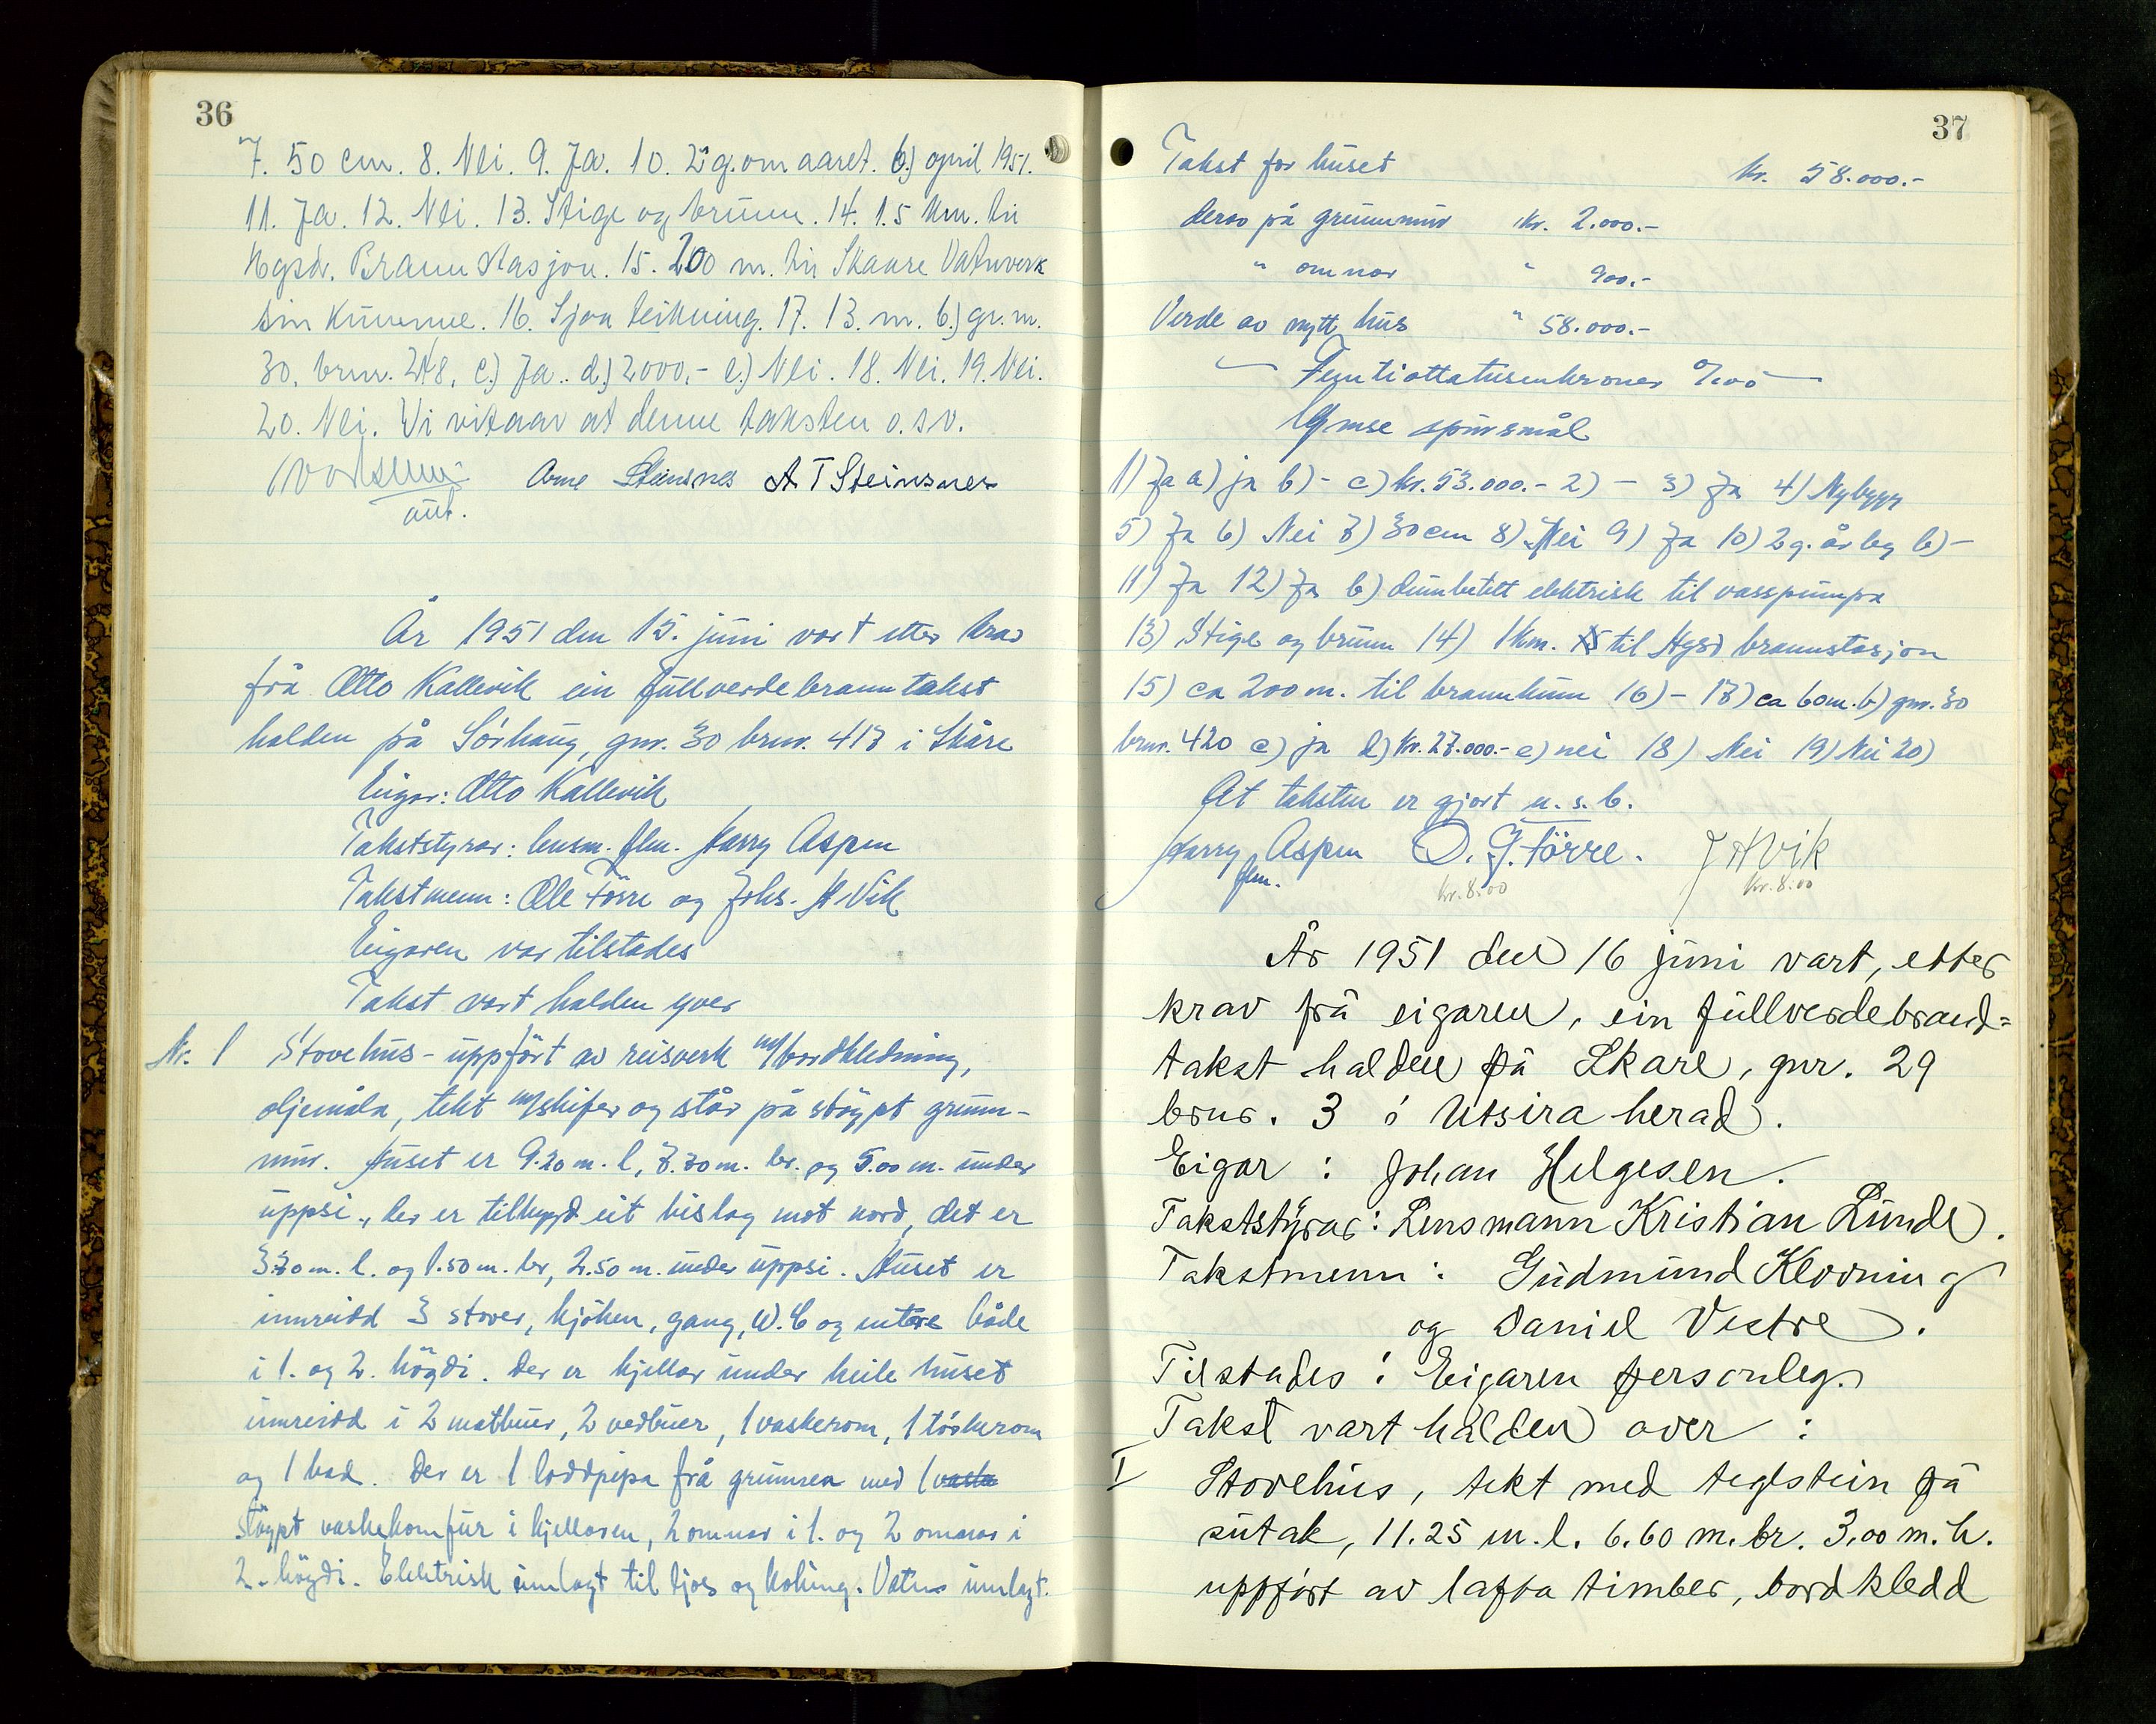 36
7. 50 cm. 8. Nei. 9. Ja. 10. 2 g. om aaret. b.) april 1951.
11. Ja. 12. Nei. 13. Stige og brunn. 14. 1.5 km. til
Hgsd. Brannstasjon. 15. 200 m. til Skaare Vatnverk
sin kumme. 16. Sjaa teikning. 17. 13. m. b.) gr. m.
30. brnr. 248. c.) Ja.. d.) 2000,- e.) Nei. 18. Nei. 19. Nei.
20. Nei. Vi vitaar at denne taksten o.s.v.
Arne Steinsnes A T Steinsnes
aut.
År 1951 den 15. juni vart etter krav
frå Otto Kallevik ein fullverdebranntakst
halden på Sörhaug, gnr. 30 brnr. 417 i Skåre
Eigar: Otto Kallevik
Takststyrar: lensm. flm. Harry Aspen
Takstmenn: Ole Förre og Johs. H Vik
Eigaren var tilstades
Takst vart halden yver
Nr. 1 Stovehus - uppfört av reisverk m/bordkledning,
oljemåla, tekt m/skifer og står på stöypt grunn-
mur. Huset er 9.20 m. l, 7.70 m. br. og 5.00 m. under
uppsi., der er tilbygd eit bislag mot nord, det er
3.70 m. l. og 1.50 m. br, 2.50 m. under uppsi. Huset er
innreidd 3 stover, kjöken, gang, W.C og entre både
i 1. og 2. högdi. Der er kjellar under heile huset
innreidd i 2 matbuer, 2 vedbuer, 1 vaskerom, 1 törkerom
og 1 bad. Der er 1 loddpipa frå grunnen med 1 vaska
stöypt vaskekomfur i kjellaren, 2 omnar i 1. og 2 omnar i
2. högdi. Elektrisk innlagt til ljos og koking. Vatn innlagt.
37
Takst for huset kr. 58.000.-
derav på grunnmur kr. 2.000.-
" omnar " 900.-
Verde av nytt hus " 58.000.-
— Femtiåttatusenkroner 0/100 —
Ymse spursmål
1) Ja a) ja b) - c) kr. 53.000.- 2) - 3) Ja 4) Nybygg
5) Ja 6) Nei 7) 30 cm 8) Nei 9) Ja 10) 2 g. årleg b) -
11) Ja 12) Ja b) elektrisk til vasspumpa
13) Stige og brunn 14) 1 km. til Hgsd brannstasjon
15) ca 200 m. til brannkum 16) - 17) ca 60 m. b) gnr. 30
brnr. 420 c) ja d) kr. 27.000.- e) nei 18) Nei 19) Nei 20)
At taksten er gjort u. s. b.
Harry Aspen O. G. Förre. J H Vik
flm. kr. 8.00 kr. 8.00
År 1951 den 16 juni vart, etter
krav frå eigaren, ein fullverdebrand=
takst halden på Skare, gnr. 29
brnr. 3 i Utsira herad.
Eigar : Johan Helgesen.
Takststyrar: Lensmann Kristian Lunde.
Takstmenn : Gudmund Klovning
og Daniel Vestre.
Tilstades : Eigaren personleg.
Takst vart halden over :
I Stovehus, tekt med teglstein på
sutak, 11.25 m. l. 6.60 m. br. 3,00 m. h.
uppfört av lafta timber, bordkledd